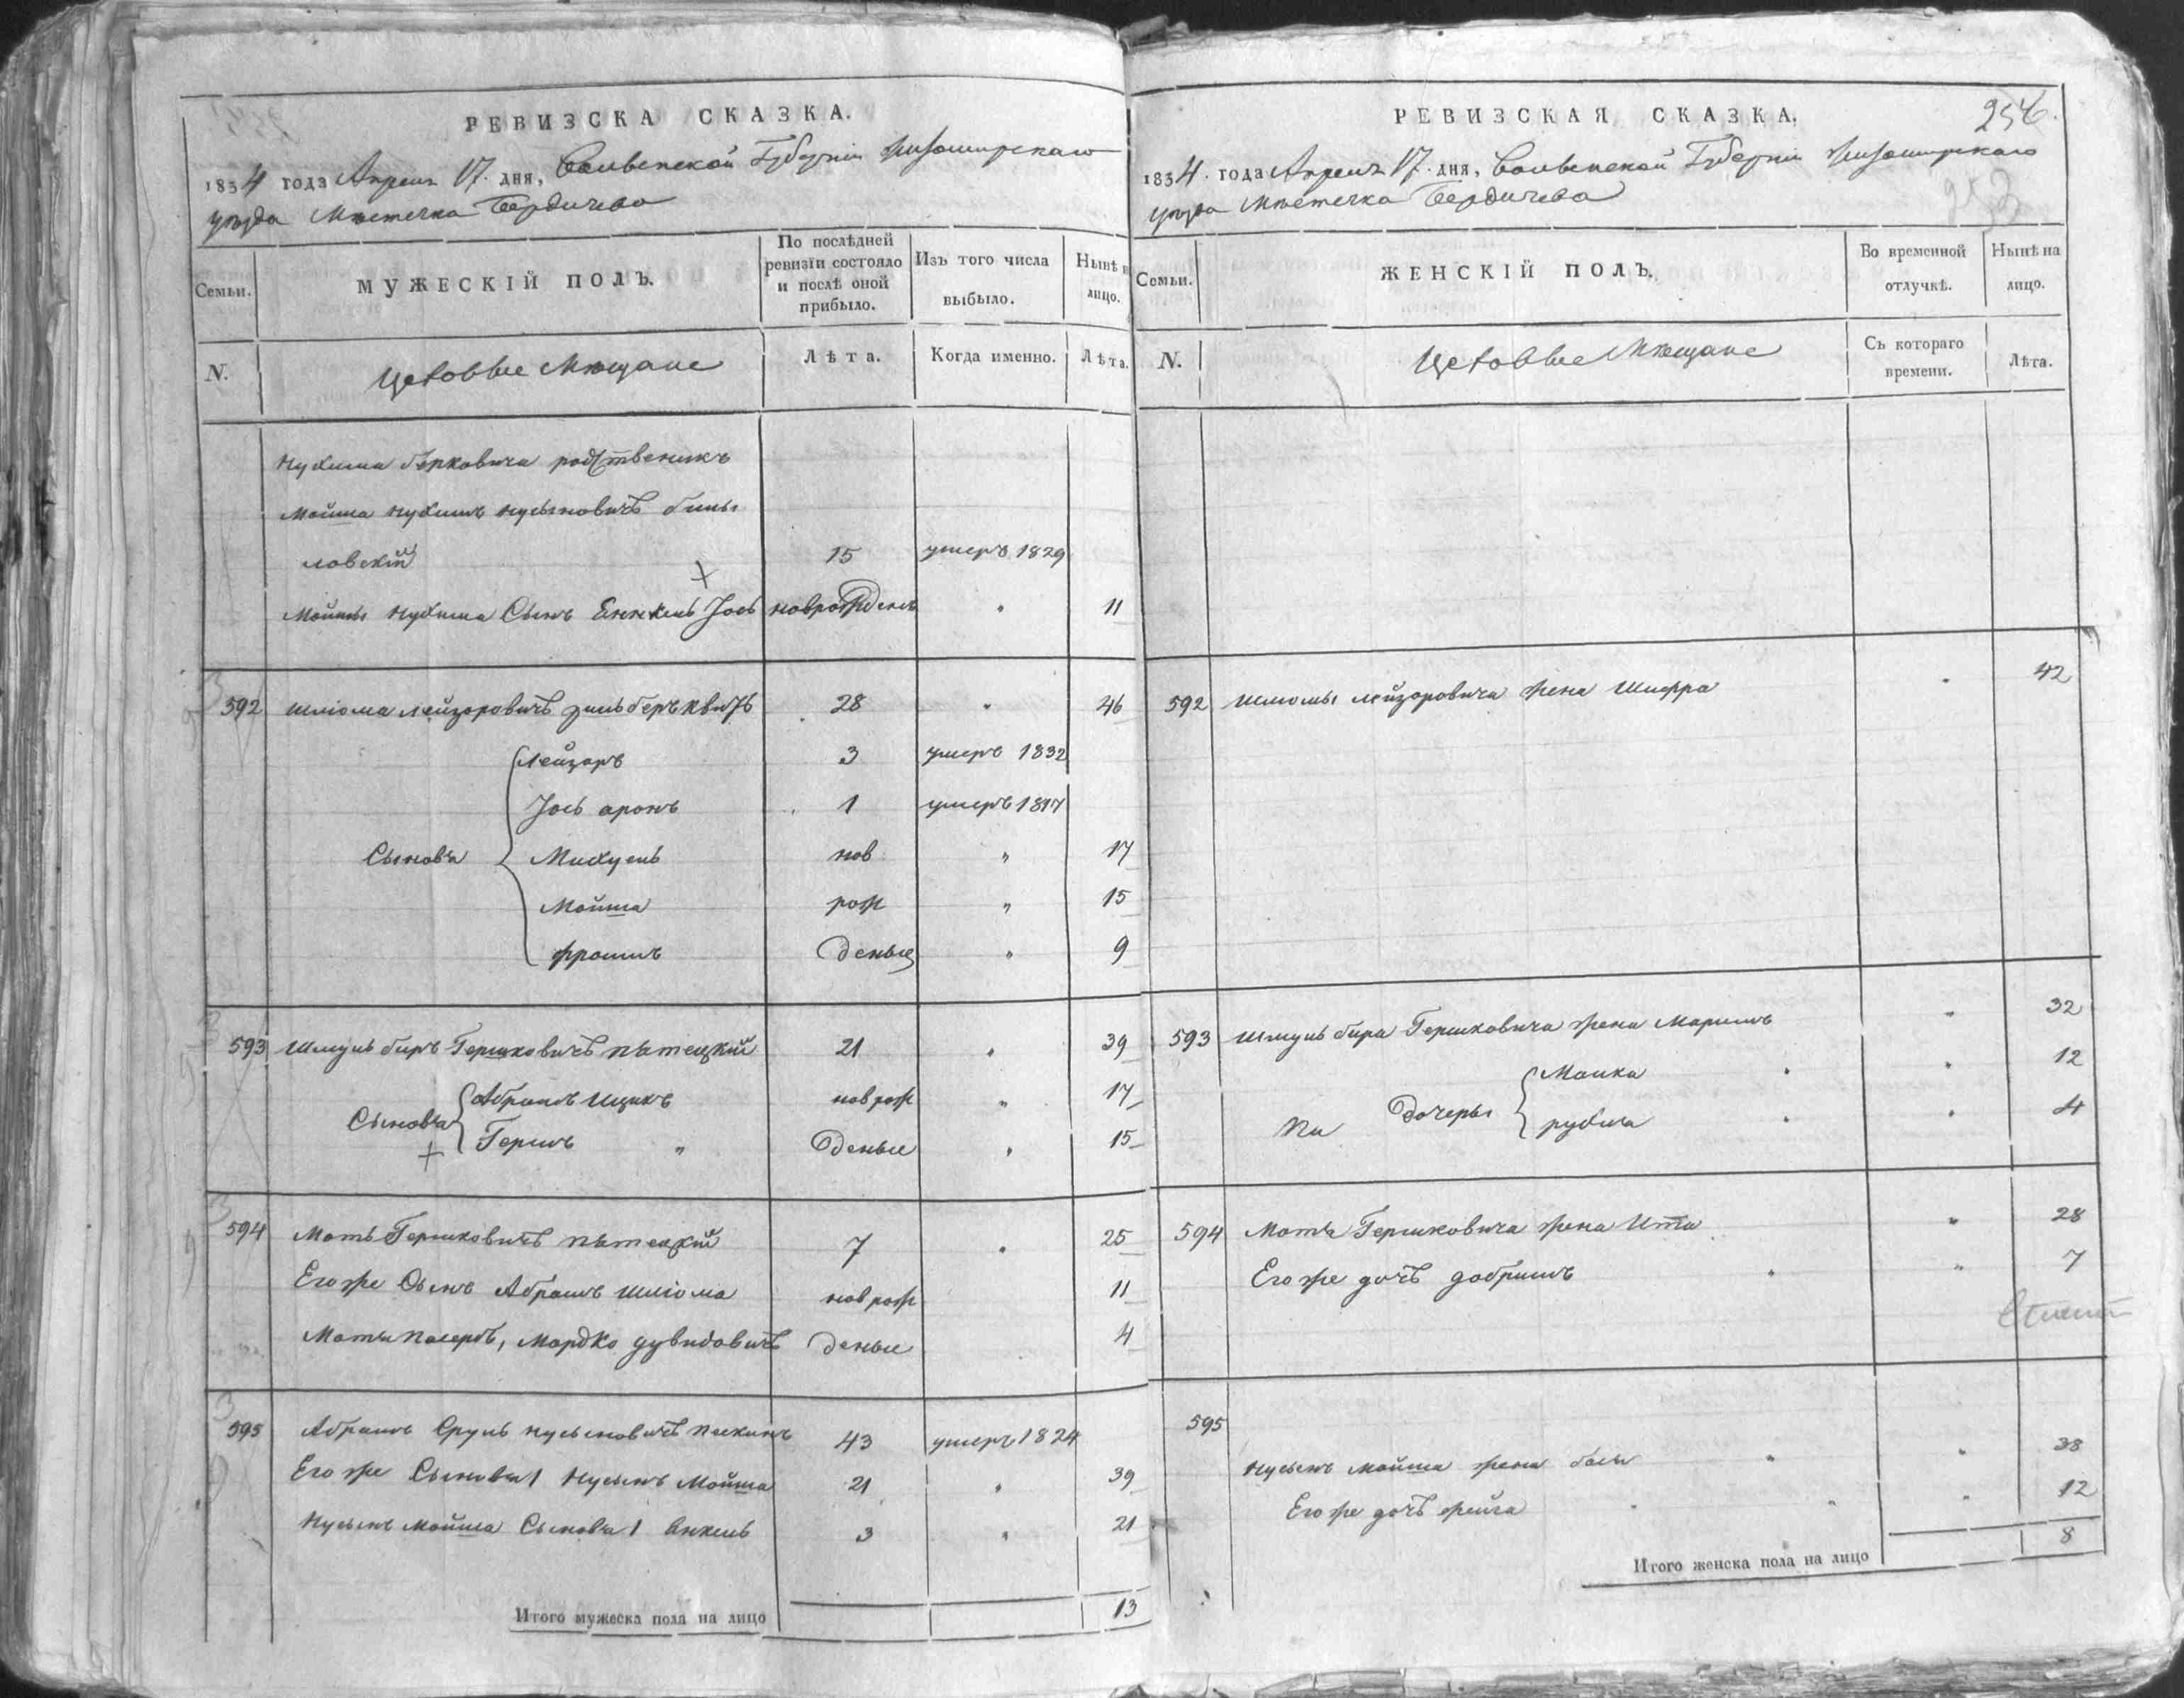 РЕВИЗСКА СКАЗКА.
1834 года Апреля 17. дня, Волынской Губерніи Житомирскаго
уезда Местечка Бердичева
Семьи.
МУЖЕСКІЙ ПОЛЪ.
По послѣдней ревизіи состояло и послѣ оной прибыло.
Изъ того числа выбыло.
Нынѣ на лицо.
N.
Цеховые Мещане
Лѣта.
Когда именно.
Лѣта.
Нухима Берковича родственикъ
Мойша Нухимъ Нусыновичъ
ловскій 15 умеръ 1829
Мойши Нухима Сынъ Янкель Іось новорожденъ " 11
592 Шліома Лейзоровичъ 28 " 46
Лейзоръ 3 умеръ 1832
Іось Аронъ 1 умеръ 1817
Сыновья Михуель нов " 17
Мойша рож " 15
Фроимъ деные " 9
593 Шмуль Беръ Гершковичъ Пятецкій 21 " 39
Абрамъ Ицикъ нов рож " 17
Сыновья Гершъ " деные " 15
594 Моть Гершковичъ Пятецкій 7 " 25
Его же Сынъ Абрамъ Шліома нов рож 11
Моти пасербъ, Мордко Дувидовичъ деные 4
595 Абрамъ Сруль Нусыновичъ 43 умеръ 1824
Его же Сыновья 1 Нусынъ Мойша 21 " 39
Нусынъ Мойша Сыновья 1 Янкель 3 " 21
Итого мужеска пола на лицо 13
РЕВИЗСКАЯ СКАЗКА.
254.
253
1834. года Апреля 17. дня, Волынской Губерніи Житомирскаго
уезда Местечка Бердичева
Семьи.
ЖЕНСКІЙ ПОЛЪ.
Во временной отлучкѣ.
Нынѣ на лицо.
N.
Цеховые Мещане
Съ котораго времени.
Лѣта.
592 Шліомы Лейзоровича жена Шифра " 42
593 Шмуль Бера Гершковича жена Маримъ " 32
Малка " " 12
Дочеры Рухля " " 4
594 Моти Гершковича жена Ита " 28
Его же дочь Добришъ " " 7
595
Нусынъ Мойша жена Бася " " 38
Его же дочь Фейга " " " 12
Итого женска пола на лицо 8